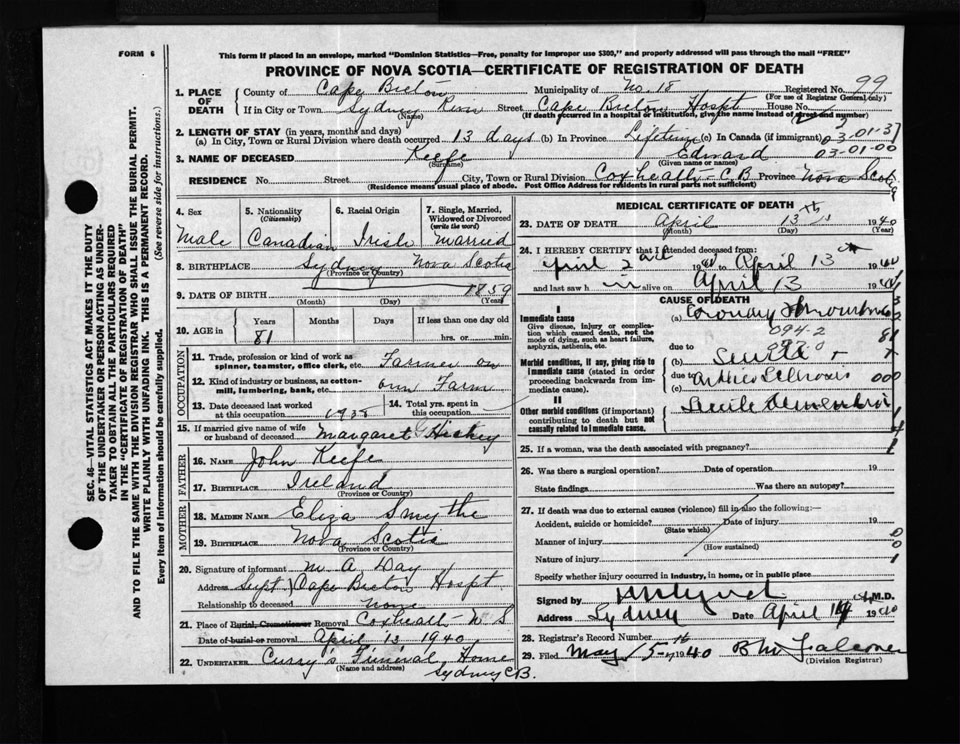 FORM 6
This form if placed in an envelope, marked "Dominion Statistics—Free, penalty for improper use $300," and properly addressed will pass through the mail "FREE"
PROVINCE OF NOVA SCOTIA—CERTIFICATE OF REGISTRATION OF DEATH
1. PLACE OF DEATH County of Cape Breton Municipality of No. 18 Registered No. 99
(For use of Registrar General only)
If in City or Town Sydney River Street Cape Breton Hospt House No.
(Name) (If death occurred in a hospital or institution, give the name instead of street and number)
2. LENGTH OF STAY (in years, months and days)
(a) In City, Town or Rural Division where death occurred 13 days (b) In Province Lifetime (c) In Canada (if immigrant)
03-01-37
03-01-00
3. NAME OF DECEASED Keefe Edward
(Surname) (Given name or names)
RESIDENCE No. Street City, Town or Rural Division Coxheath - C.B Province Nova Scotia
(Residence means usual place of abode. Post Office Address for residents in rural parts not sufficient)
4. Sex 5. Nationality (Citizenship) 6. Racial Origin 7. Single, Married, Widowed or Divorced (write the word)
Male Canadian Irish Married
8. BIRTHPLACE Sydney Nova Scotia
(Province or Country)
9. DATE OF BIRTH 1859
(Month) (Day) (Year)
10. AGE in Years Months Days If less than one day old
81 hrs. or min.
OCCUPATION
11. Trade, profession or kind of work as spinner, teamster, office clerk, etc. Farmer on
12. Kind of industry or business, as cotton-mill, lumbering, bank, etc. own Farm
13. Date deceased last worked at this occupation 1938 14. Total yrs. spent in this occupation
15. If married give name of wife or husband of deceased Margaret Hickey
FATHER
16. NAME John Keefe
17. BIRTHPLACE Ireland
(Province or Country)
MOTHER
18. MAIDEN NAME Eliza Smythe
19. BIRTHPLACE Nova Scotia
(Province or Country)
20. Signature of informant M. A. Day
Address Supt. Cape Breton Hospt.
Relationship to deceased None
21. Place of Burial, Cremation or Removal Coxheath - N S
Date of burial or removal April 13 1940
22. UNDERTAKER Curry's Funeral Home
(Name and address)
Sydney C.B.
MEDICAL CERTIFICATE OF DEATH
23. DATE OF DEATH April 13th 1940
(Month) (Day) (Year)
24. I HEREBY CERTIFY that I attended deceased from:
April 2nd 1940 to April 13 1940
and last saw h im alive on April 13 1940
CAUSE OF DEATH
I
Immediate cause (a) Coronary Thrombosis
Give disease, injury or complication which caused death, not the mode of dying, such as heart failure, asphyxia, asthenia, etc.
094-2
due to
097-0
Morbid conditions, if any, giving rise to immediate cause (stated in order proceeding backwards from immediate cause). (b) Senile +
due to Arterio Sclerosis
(c)
000
II
Other morbid conditions (if important) contributing to death but not causally related to immediate cause. Senile Dementia
25. If a woman, was the death associated with pregnancy?
26. Was there a surgical operation? Date of operation 19
State findings Was there an autopsy?
27. If death was due to external causes (violence) fill in also the following:
Accident, suicide or homicide? Date of injury 19
(State which)
Manner of injury
(How sustained)
Nature of injury
Specify whether injury occurred in industry, in home, or in public place
Signed by M.D.
Address Sydney Date April 14 1940
28. Registrar's Record Number
29. Filed May 15th 1940
(Division Registrar)
SEC. 46—VITAL STATISTICS ACT MAKES IT THE DUTY
OF THE UNDERTAKER OR PERSON ACTING AS UNDERTAKER
TO OBTAIN ALL THE PARTICULARS REQUIRED
IN THE "CERTIFICATE OF REGISTRATION OF DEATH"
AND TO FILE THE SAME WITH THE DIVISION REGISTRAR WHO SHALL ISSUE THE BURIAL PERMIT.
WRITE PLAINLY WITH UNFADING INK. THIS IS A PERMANENT RECORD.
Every item of information should be carefully supplied. (See reverse side for instructions.)